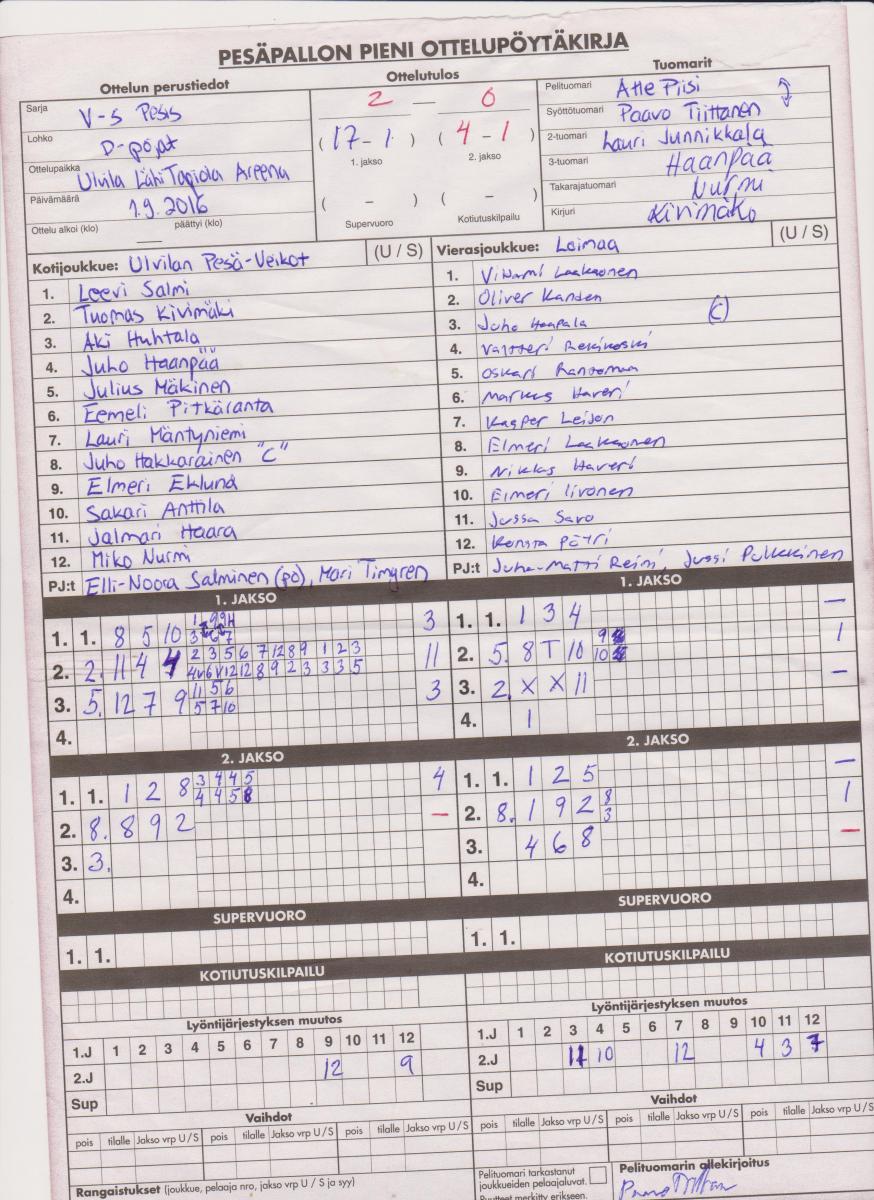 PESÄPALLON PIENI OTTELUPÖYTÄKIRJA
Ottelun perustiedot
Sarja V-S Pesis
Lohko D-pojat
Ottelupaikka Ulvila Lähi Tapiola Areena
Päivämäärä 1.9.2016
Ottelu alkoi (klo) päättyi (klo)
Ottelutulos
2 – 0
(17 – 1) (4 – 1)
1. jakso 2. jakso
( – ) ( – )
Supervuoro Kotiutuskilpailu
Tuomarit
Pelituomari Atte Piisi
Syöttötuomari Paavo Tiittanen
2-tuomari Lauri Junnikkala
3-tuomari Haanpää
Takarajatuomari Nurmi
Kirjuri Kivimäki
Kotijoukkue: Ulvilan Pesä-Veikot (U / S)
1. Leevi Salmi
2. Tuomas Kivimäki
3. Aki Huhtala
4. Juho Haanpää
5. Julius Mäkinen
6. Eemeli Pitkäranta
7. Lauri Mäntyniemi
8. Juho Hakkarainen "C"
9. Elmeri Eklund
10. Sakari Anttila
11. Jalmari Haara
12. Miko Nurmi
PJ:t Elli-Noora Salminen (po), Mari Timgren
Vierasjoukkue: Loimaa (U / S)
1. Laaksonen
2. Oliver
3. Juho Haapala (C)
4. Valtteri
5. Oskari Rantamaa
6. Markus Haveri
7. Kasper
8. Elmeri Laaksonen
9. Niklas Haveri
10. Elmeri Iivonen
11. Jussa Savo
12. Konsta
PJ:t Juha-Matti Reini, Jussi Pulkkinen
1. JAKSO
1. 1. 8 5 10 3
2. 2. 11 4 4 2 3 5 6 7 12 8 9 1 2 3 11
4 v 6 v 12 12 8 9 2 3 3 3 5
3. 5. 12 7 9 11 5 6 3
5 7 10
4.
1. JAKSO
1. 1. 1 3 4 –
2. 5. 8 T 10 9 1
10
3. 2. X X 11 –
4. 1
2. JAKSO
1. 1. 1 2 8 3 4 4 5 4
4 4 5 8
2. 8. 8 9 2 –
3. 3.
4.
2. JAKSO
1. 1. 1 2 5 –
2. 8. 1 9 2 8 1
3
3. 4 6 8 –
4.
SUPERVUORO
1. 1.
SUPERVUORO
1. 1.
KOTIUTUSKILPAILU
KOTIUTUSKILPAILU
Lyöntijärjestyksen muutos
1.J 1 2 3 4 5 6 7 8 9 10 11 12
2.J 12 9
Sup
Lyöntijärjestyksen muutos
1.J 1 2 3 4 5 6 7 8 9 10 11 12
2.J 11 10 12 4 3 7
Sup
Vaihdot
pois tilalle Jakso vrp U / S pois tilalle Jakso vrp U / S pois tilalle Jakso vrp U / S
Vaihdot
pois tilalle Jakso vrp U / S pois tilalle Jakso vrp U / S pois tilalle Jakso vrp U / S
Rangaistukset (joukkue, pelaaja nro, jakso vrp U / S ja syy)
Pelituomari tarkastanut
joukkueiden pelaajaluvat.
Puutteet merkitty erikseen.
Pelituomarin allekirjoitus